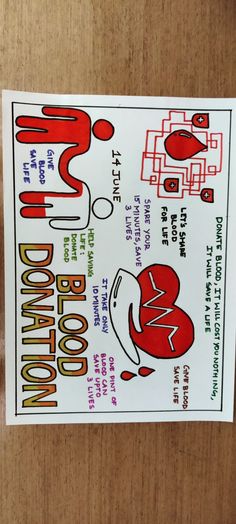 DONATE BLOOD, IT WILL COST YOU NOTHING,
IT WILL SAVE A LIFE
LET'S SHARE
BLOOD
FOR LIFE
14 JUNE
GIVE
BLOOD
SAVE
LIFE
SPARE YOUR
15 MINUTES, SAVE
3 LIVES
HELP SAVING
LIFE:
DONATE
BLOOD
IT TAKE ONLY
10 MINUTES
GIVE BLOOD
SAVE LIFE
ONE PINT OF
BLOOD CAN
SAVE UPTO
3 LIVES
BLOOD
DONATION